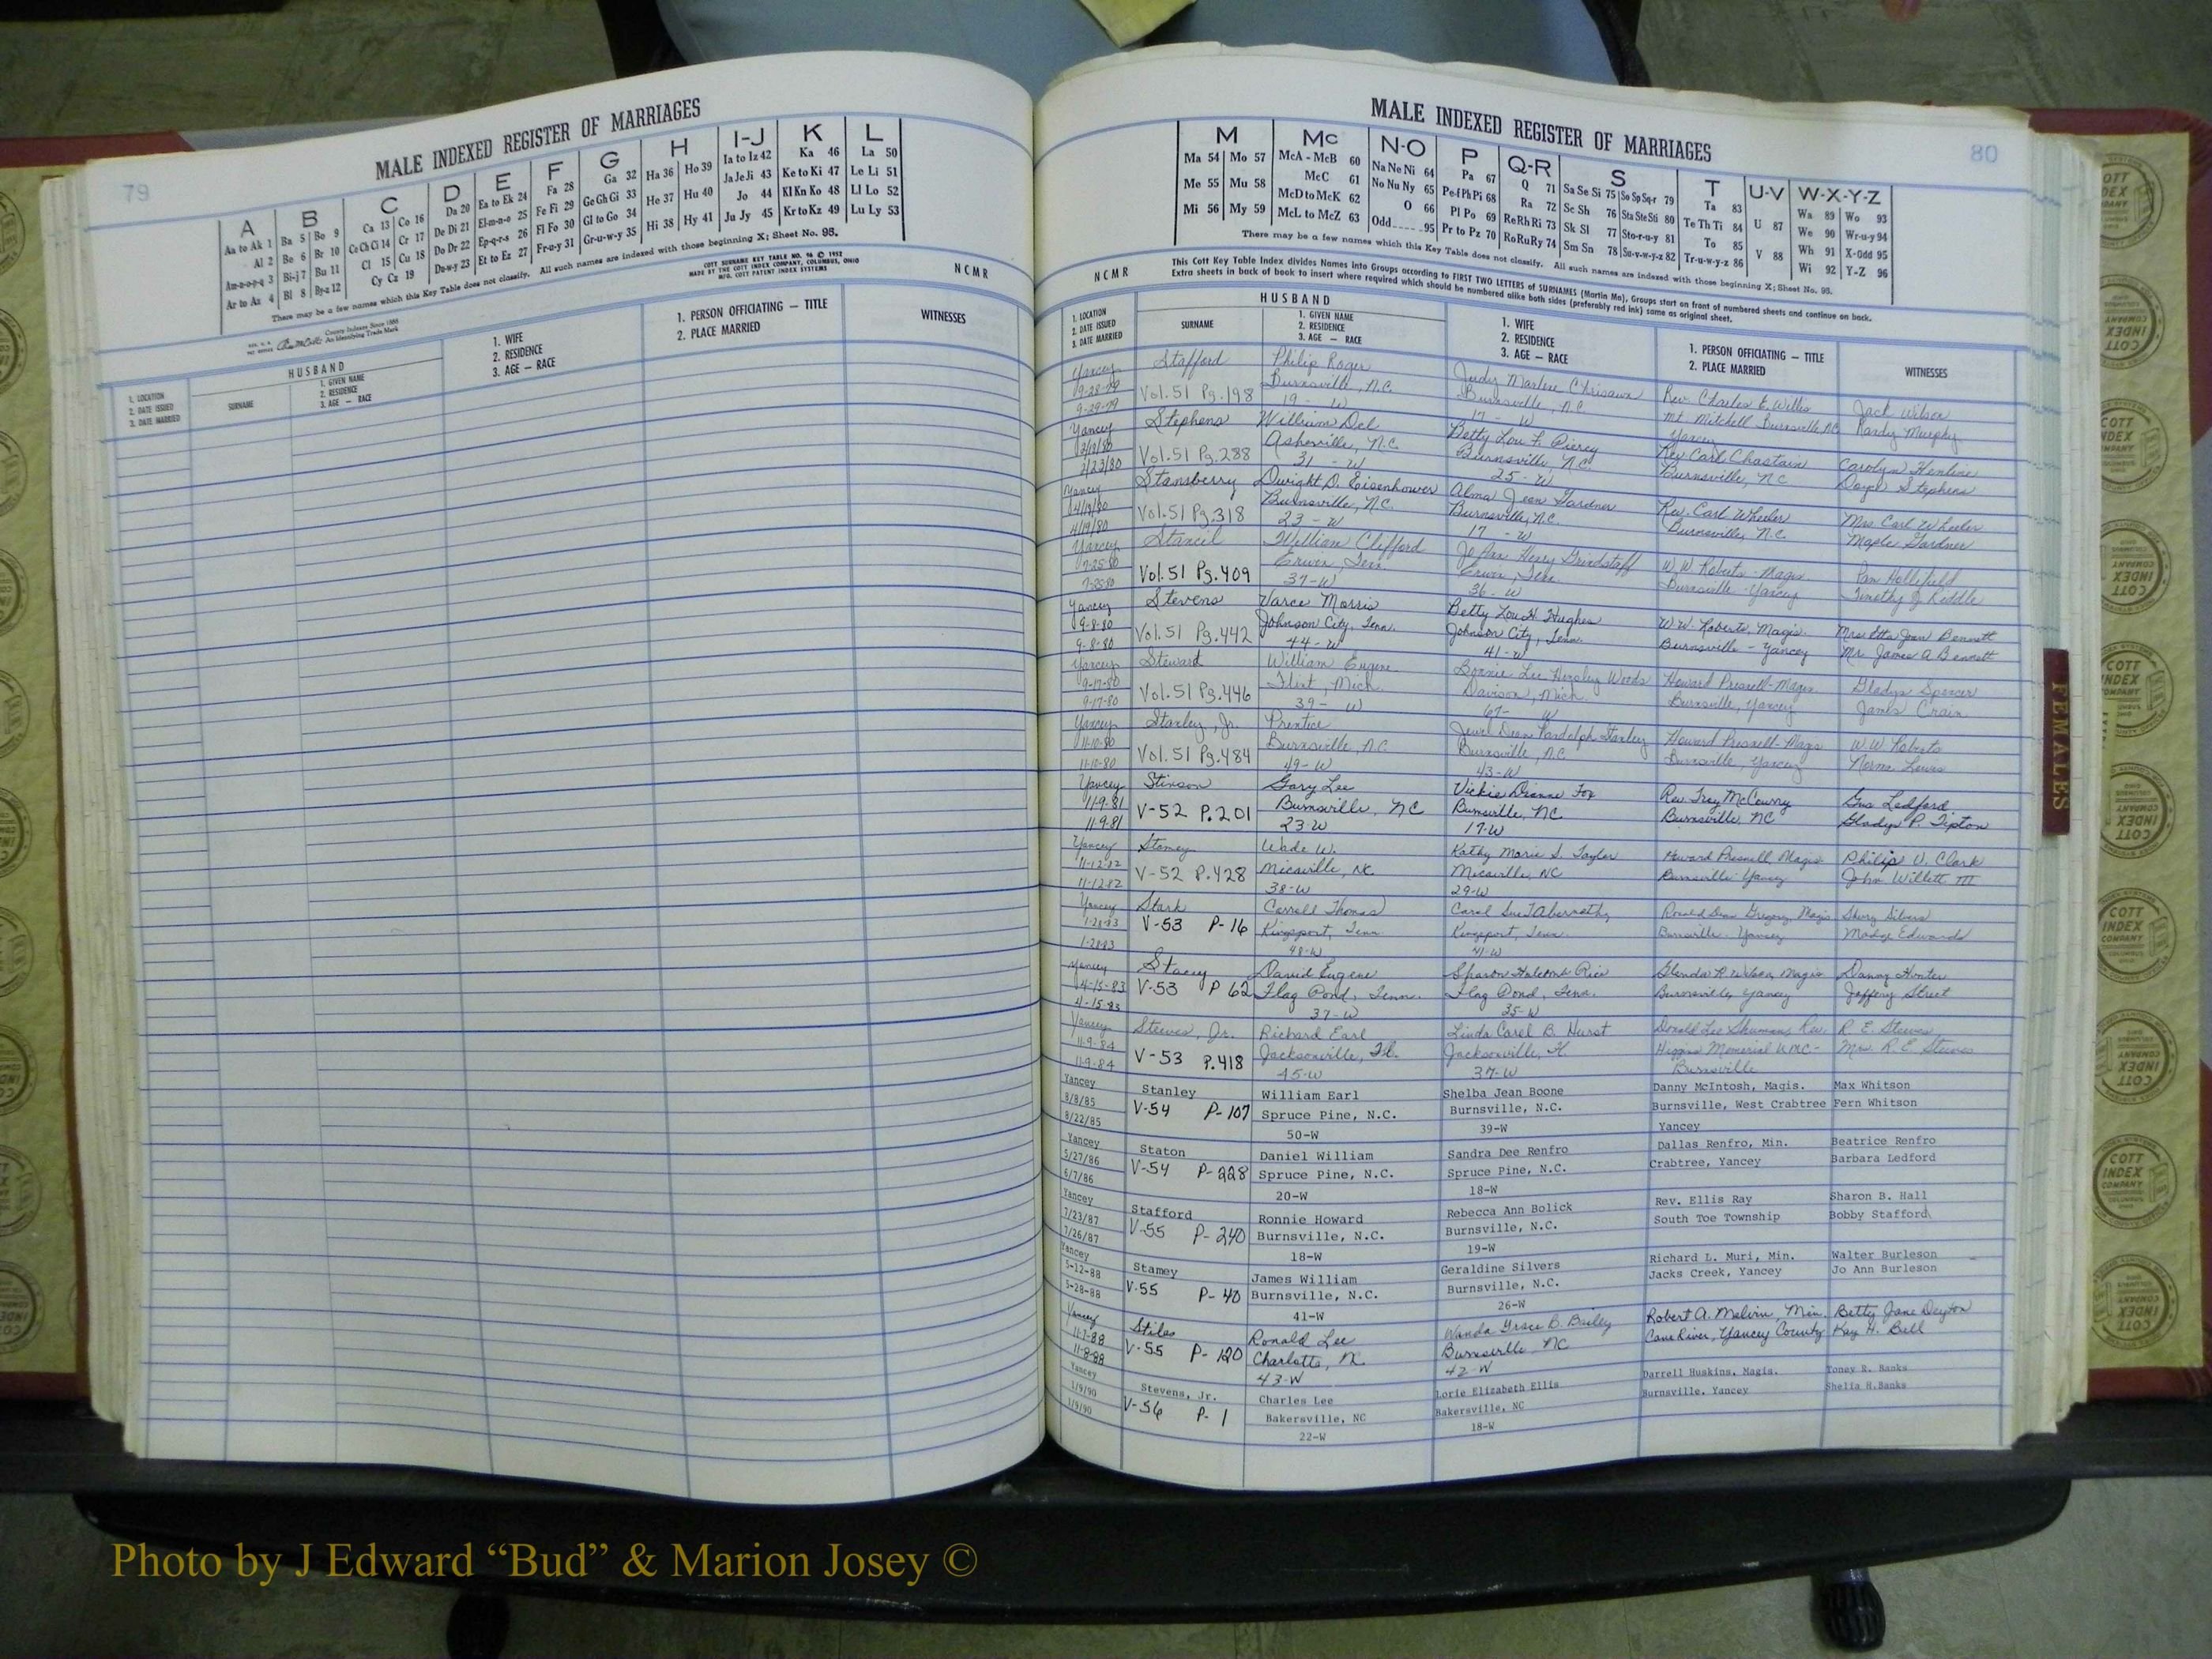 79
MALE INDEXED REGISTER OF MARRIAGES
A
Aa to Ak 1
Al 2
Am-n-o-p-q 3
Ar to Az 4
B
Ba 5 Bo 9
Be 6 Br 10
Bi-j 7 Bu 11
Bl 8 By-z 12
C
Ca 13 Co 16
Ce Ch Ci 14 Cr 17
Cl 15 Cu 18
Cy Cz 19
D
Da 20
De Di 21
Do Dr 22
Du-w-y 23
E
Ea to Ek 24
El-m-n-o 25
Ep-q-r-s 26
Et to Ez 27
F
Fa 28
Fe Fi 29
Fl Fo 30
Fr-u-y 31
G
Ga 32
Ge Gh Gi 33
Gl to Go 34
Gr-u-w-y 35
H
Ha 36 Ho 39
He 37 Hu 40
Hi 38 Hy 41
I-J
Ia to Iz 42
Ja Je Ji 43
Jo 44
Ju Jy 45
K
Ka 46
Ke to Ki 47
Kl Kn Ko 48
Kr to Kz 49
L
La 50
Le Li 51
Ll Lo 52
Lu Ly 53
There may be a few names which this Key Table does not classify. All such names are indexed with those beginning X; Sheet No. 95.
COTT SURNAME KEY TABLE NO. 96 © 1952
MADE BY THE COTT INDEX COMPANY, COLUMBUS, OHIO
MFG. COTT PATENT INDEX SYSTEMS
NCMR
County Indexes Since 1888
An Identifying Trade Mark
1. LOCATION
2. DATE ISSUED
3. DATE MARRIED
HUSBAND
SURNAME
1. GIVEN NAME
2. RESIDENCE
3. AGE — RACE
1. WIFE
2. RESIDENCE
3. AGE — RACE
1. PERSON OFFICIATING — TITLE
2. PLACE MARRIED
WITNESSES
MALE INDEXED REGISTER OF MARRIAGES
80
M
Ma 54 Mo 57
Me 55 Mu 58
Mi 56 My 59
Mc
McA - McB 60
McC 61
McD to McK 62
McL to McZ 63
N-O
Na Ne Ni 64
No Nu Ny 65
O 66
Odd 95
P
Pa 67
Pe-f Ph Pi 68
Pl Po 69
Pr to Pz 70
Q-R
Q 71
Ra 72
Re Rh Ri 73
Ro Ru Ry 74
S
Sa Se Si 75 So Sp Sq-r 79
Sc Sh 76 Sta Ste Sti 80
Sk Sl 77 Sto-r-u-y 81
Sm Sn 78 Su-v-w-y-z 82
T
Ta 83
Te Th Ti 84
To 85
Tr-u-w-y-z 86
U-V
U 87
V 88
W-X-Y-Z
Wa 89 Wo 93
We 90 Wr-u-y 94
Wh 91 X-Odd 95
Wi 92 Y-Z 96
There may be a few names which this Key Table does not classify. All such names are indexed with those beginning X; Sheet No. 95.
NCMR
This Cott Key Table Index divides Names into Groups according to FIRST TWO LETTERS of SURNAMES (Martin Ma), Groups start on front of numbered sheets and continue on back.
Extra sheets in back of book to insert where required which should be numbered alike both sides (preferably red ink) same as original sheet.
1. LOCATION
2. DATE ISSUED
3. DATE MARRIED
HUSBAND
SURNAME
1. GIVEN NAME
2. RESIDENCE
3. AGE — RACE
1. WIFE
2. RESIDENCE
3. AGE — RACE
1. PERSON OFFICIATING — TITLE
2. PLACE MARRIED
WITNESSES
Yancey Stafford Philip Roger Judy Marlene Chrisawn Rev. Charles E. Willis Jack Wilson
9-28-79 Vol. 51 Pg. 198 Burnsville, N.C. Burnsville, N.C. Mt. Mitchell Burnsville, NC Randy Murphy
9-29-79 19 - W 17 - W Yancey
Yancey Stephens William Del Betty Lou F. Piercy Rev. Carl Chastain Carolyn Henline
Vol. 51 Pg. 288 Asheville, N.C. Burnsville, N.C. Burnsville, N.C. Stephens
2/23/80 31 - W 25 - W
Yancey Stansberry Dwight D. Eisenhower Alma Jean Gardner Rev. Carl Wheeler Mrs Carl Wheeler
Vol. 51 Pg. 318 Burnsville, N.C. Burnsville, N.C. Burnsville, N.C. Maple Gardner
4/19/80 23 - W 17 - W
Yancey Stancil William Clifford Grindstaff W.W. Roberts - Magis Pam Hollifield
7-25-80 Vol. 51 Pg. 409 Erwin, Tenn Erwin, Tenn Burnsville - Yancey Timothy J. Riddle
7-25-80 37-W 36 - W
Yancey Stevens Vance Morris Betty Lou H. Hughes W.W. Roberts, Magis. Mrs Etta Jean Bennett
9-8-80 Vol. 51 Pg. 442 Johnson City, Tenn. Johnson City, Tenn. Burnsville - Yancey Mr. James A Bennett
9-8-80 44 - W 41 - W
Yancey Steward William Eugene Bonnie Lee Hensley Woods Howard Presnell-Magis Gladys Spencer
9-17-80 Vol. 51 Pg. 446 Flint, Mich. Davison, Mich. Burnsville, Yancey James Crain
9-17-80 39 - W W
Yancey Stanley, Jr. Prentice Jewel Dean Randolph Stanley Howard Presnell-Magis W.W. Roberts
11-10-80 Vol. 51 Pg. 484 Burnsville, N.C. Burnsville, N.C. Burnsville, Yancey Norma Lewis
11-10-80 49-W 43-W
Yancey Stinson Gary Lee Vickie Dianne Fox Rev. Troy McCourry Gus Ledford
11-9-81 V-52 P.201 Burnsville, NC Burnsville, NC Burnsville, NC Gladys P. Tipton
11-9-81 23-W 17-W
Yancey Stamey Wade W. Kathy Marie S. Taylor Howard Presnell, Magis Philip V. Clark
11-12-82 V-52 P.428 Micaville, NC Micaville, NC Burnsville-Yancey John Willett III
11-12-82 38-W 29-W
Yancey Stark Carroll Thomas Carol Sue T Abernathy Ronald Dean Gregory Magis Sherry Silvers
1-28-83 V-53 P-16 Kingsport, Tenn Kingsport, Tenn. Burnsville-Yancey Madge Edwards
1-28-83 48-W 41-W
Yancey Stacey David Eugene Sharon Holcomb Rice Glenda R. Wilson, Magis Danny Hunter
4-15-83 V-53 P 62 Flag Pond, Tenn. Flag Pond, Tenn. Burnsville, Yancey Jeffery Street
4-15-83 37-W 35-W
Yancey Steeves, Jr. Richard Earl Linda Carol B. Hurst Donald Lee Shuman, Rev. R. E. Steeves
11-9-84 V-53 P.418 Jacksonville, Fl. Jacksonville, Fl. Higgins Memorial UMC- Mrs. R. E. Steeves
11-9-84 45-W 37-W Burnsville
Yancey Stanley William Earl Shelba Jean Boone Danny McIntosh, Magis. Max Whitson
8/8/85 V-54 P-107 Spruce Pine, N.C. Burnsville, N.C. Burnsville, West Crabtree Fern Whitson
8/22/85 50-W 39-W Yancey
Yancey Staton Daniel William Sandra Dee Renfro Dallas Renfro, Min. Beatrice Renfro
5/27/86 V-54 P-228 Spruce Pine, N.C. Spruce Pine, N.C. Crabtree, Yancey Barbara Ledford
6/7/86 20-W 18-W
Yancey Stafford Ronnie Howard Rebecca Ann Bolick Rev. Ellis Ray Sharon B. Hall
7/23/87 V-55 P-240 Burnsville, N.C. Burnsville, N.C. South Toe Township Bobby Stafford
7/26/87 18-W 19-W
Yancey Stamey James William Geraldine Silvers Richard L. Muri, Min. Walter Burleson
5-12-88 V-55 P-40 Burnsville, N.C. Burnsville, N.C. Jacks Creek, Yancey Jo Ann Burleson
5-28-88 41-W 26-W
Yancey Stiles Ronald Lee Wanda Grace B. Bailey Robert A. Melvin, Min. Betty Jane Deyton
11-7-88 V-55 P-120 Charlotte, NC Burnsville, NC Cane River, Yancey County Kay H. Bell
11-8-88 43-W 42-W
Yancey Stevens, Jr. Charles Lee Lorie Elizabeth Ellis Darrell Huskins, Magis. Toney R. Banks
1/9/90 V-56 P-1 Bakersville, NC Bakersville, NC Burnsville, Yancey Shelia H.Banks
1/9/90 22-W 18-W
FEMALES
COTT
INDEX
COMPANY
Photo by J Edward “Bud” & Marion Josey ©